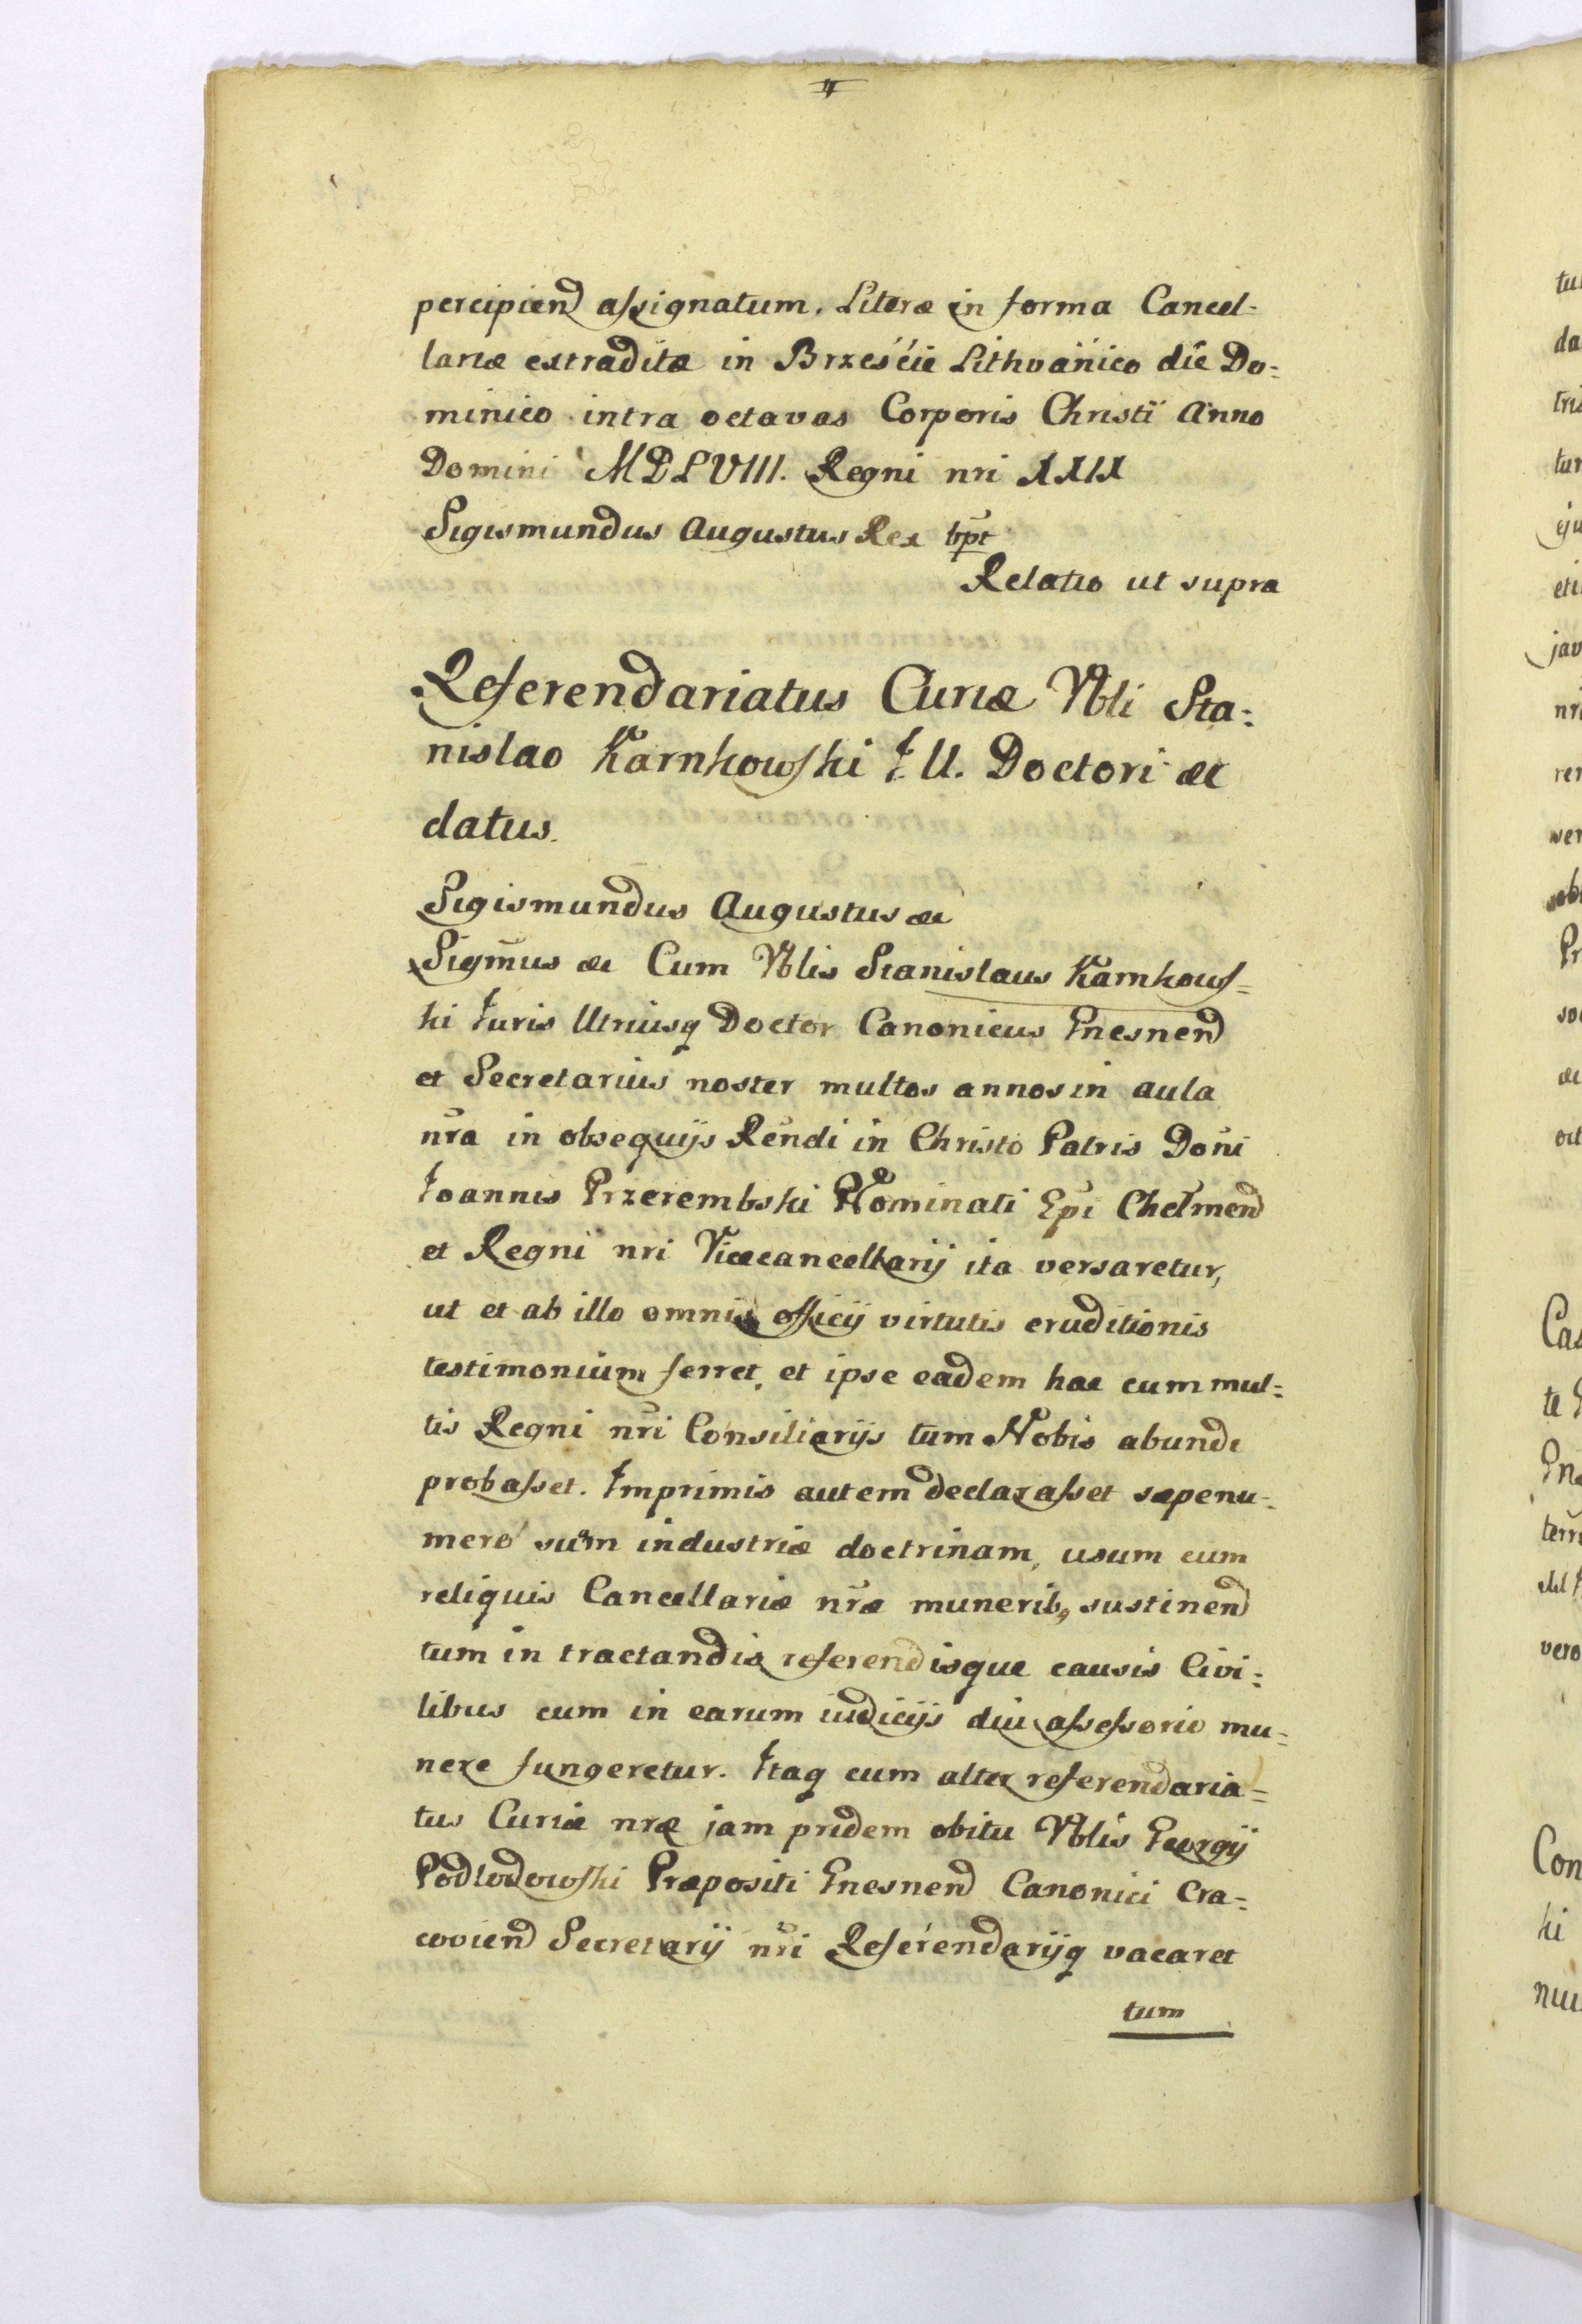 percipiend assignatum. Literæ in forma Cancel-
lariæ extraditæ in Brześćie Lithvanico die Do=
minico intra octavas Corporis Christi Anno
Domini MDLVIII. Regni nri XXIX
Sigismundus Augustus Rex
Relatio ut supra
Referendariatus Curiæ Nbli Sta=
nislao Karnkowski I. U. Doctori &c
datus.
Sigismundus Augustus &c
Sigmus &c Cum Nblis Stanislaus Karnkows=
ki Iuris Utriusq Doctor Canonicus Gnesnend
et Secretarius noster multos annos in aula
nra in obsequijs Rendi in Christo Patris Doni
Ioannis Przerembski Nominati Epi Chelmend
et Regni nri Vicecancellarij ita versaretur,
ut et ab illo omnis officij virtutis eruditionis
testimonium ferret, et ipse eadem hac cum mul=
tis Regni nri Consiliarijs tum Nobis abunde
probasset. Imprimis autem declarasset sæpenu=
mero suam industriæ doctrinam, usum cum
reliquis Cancellariæ nræ munerib, sustinend
tum in tractandis referendisque causis Civi=
libus cum in earum iudicijs diu assessorio mu=
nere fungeretur. Itaq cum alter referendaria=
tus Curiæ nræ jam pridem obitu Nblis Georgij
Podlodowski Præpositi Gnesnend Canonici Cra=
coviend Secretarij nri Referendarijq vacaret
tum